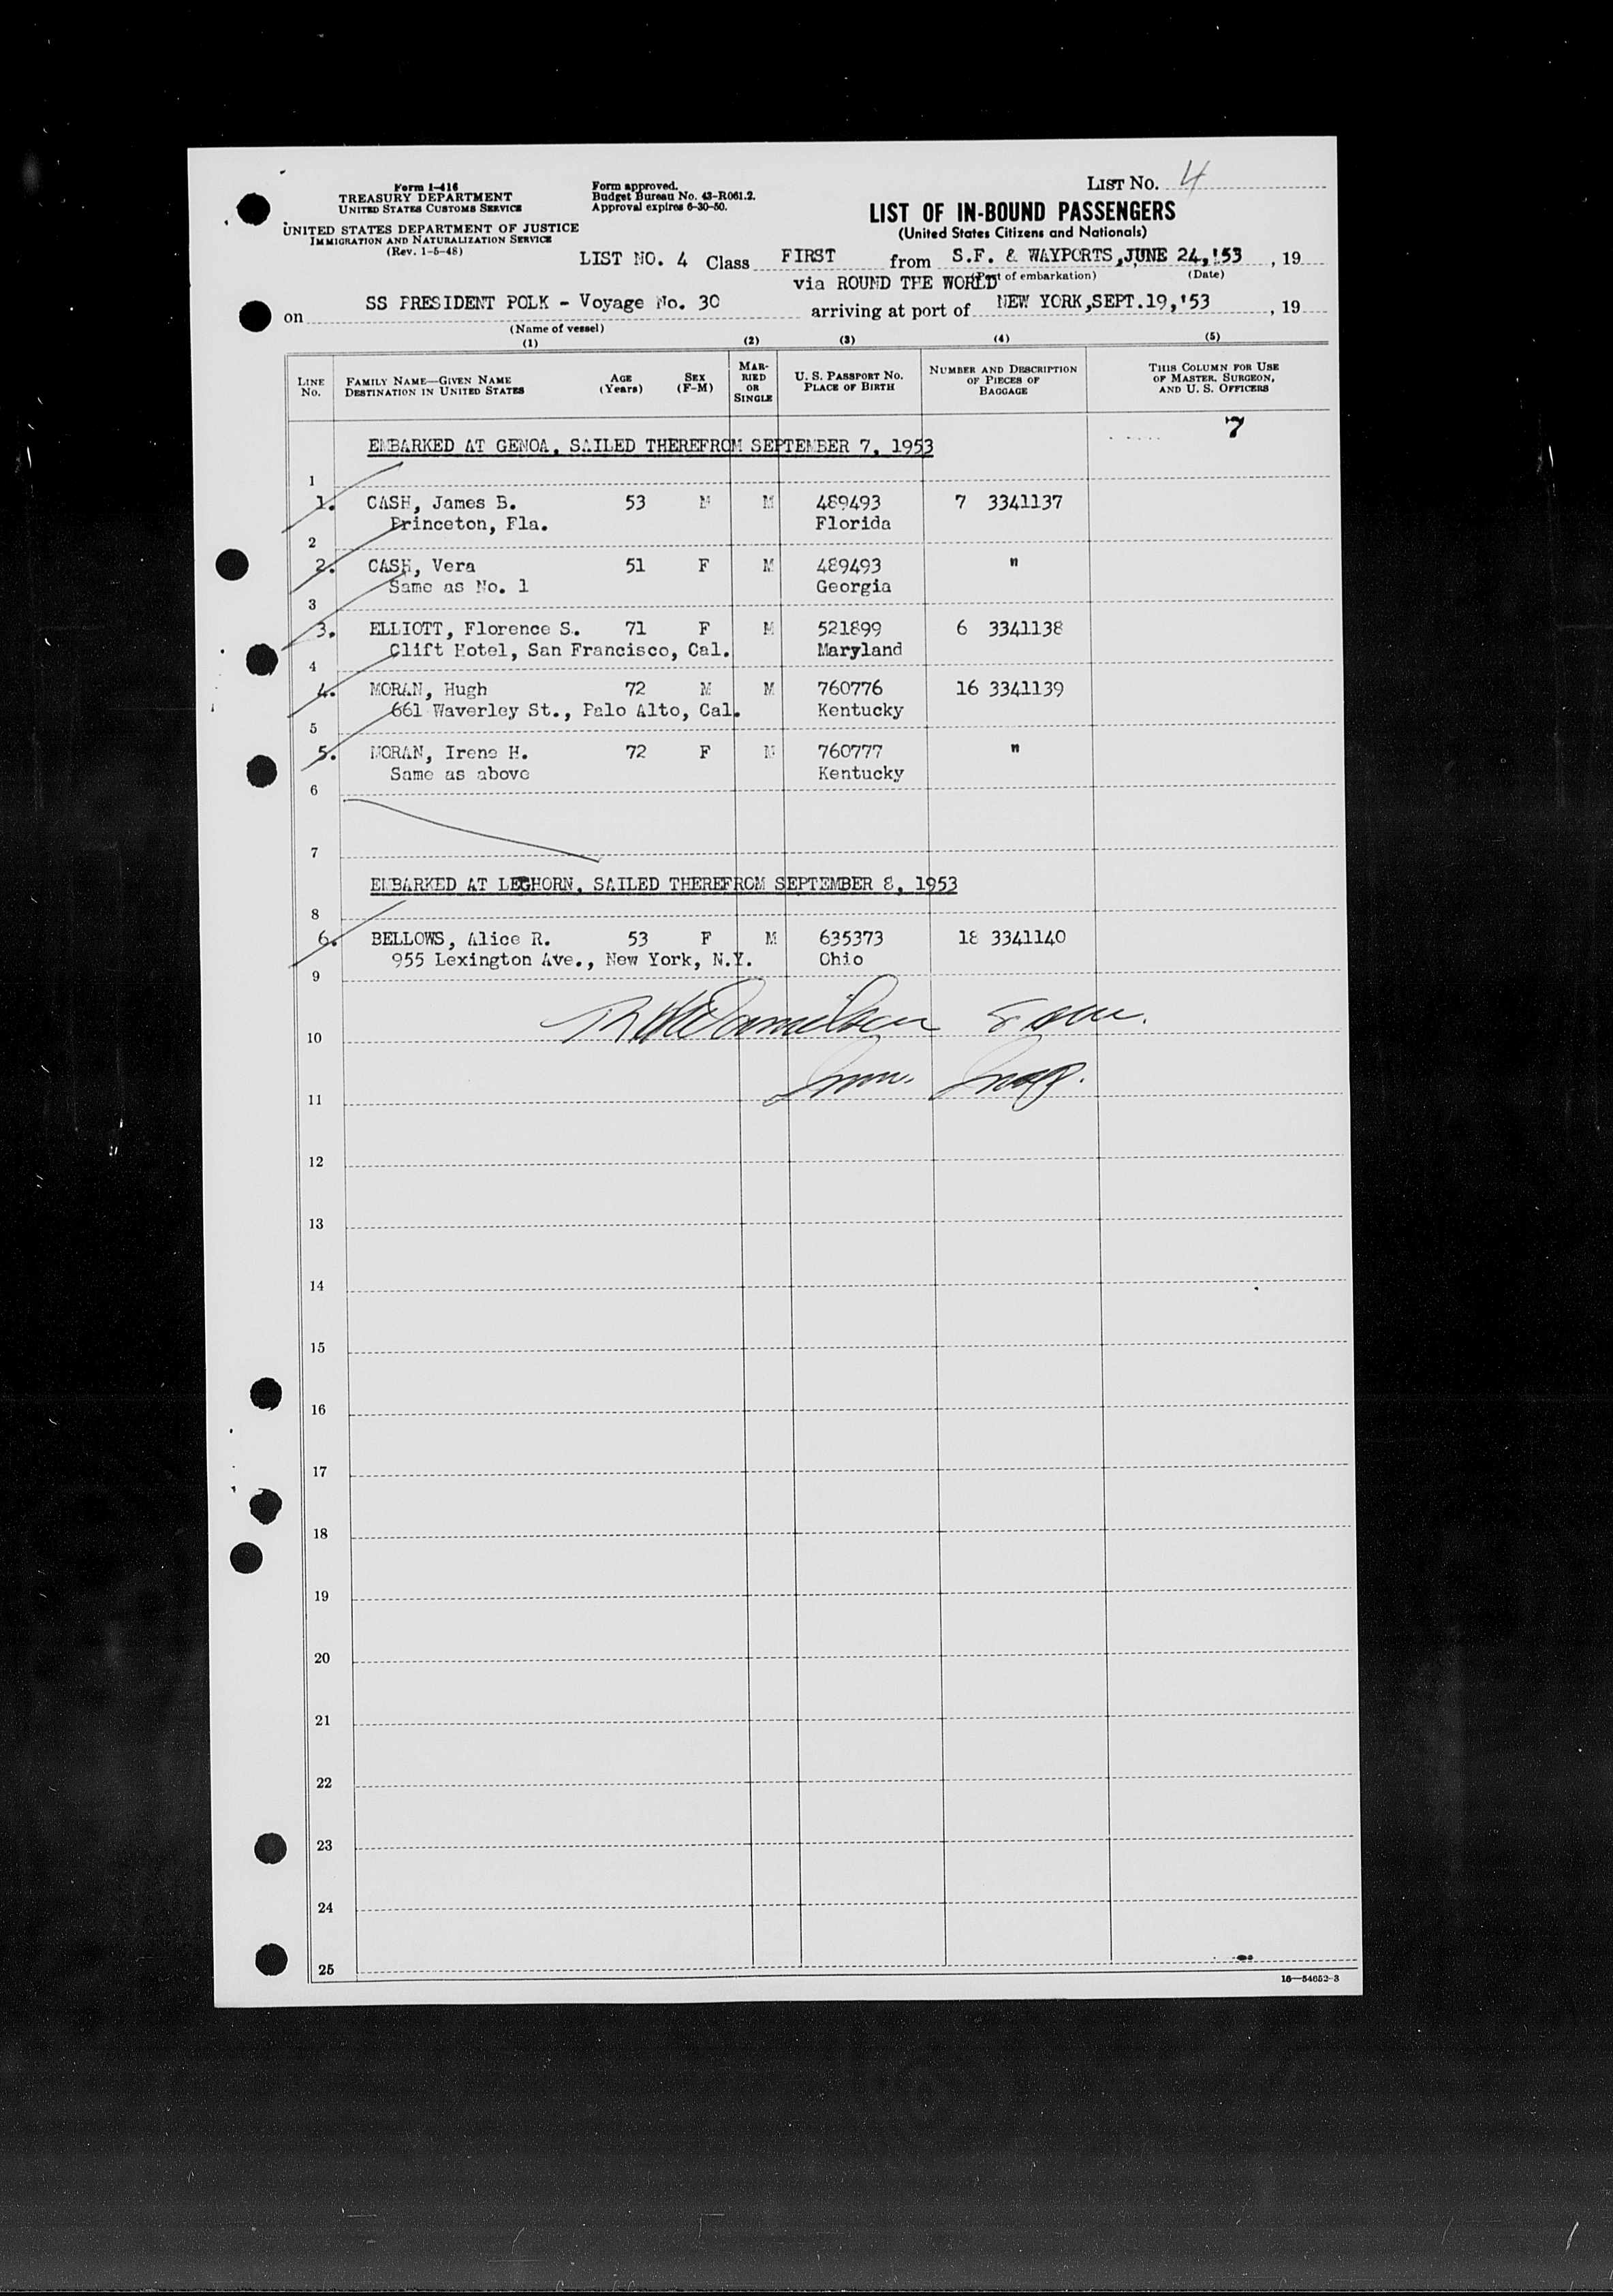 Form I-416
TREASURY DEPARTMENT
UNITED STATES CUSTOMS SERVICE
UNITED STATES DEPARTMENT OF JUSTICE
IMMIGRATION AND NATURALIZATION SERVICE
(Rev. 1-5-48)
Form approved.
Budget Bureau No. 43-R061.2.
Approval expires 6-30-50.
LIST NO. 4
LIST OF IN-BOUND PASSENGERS
(United States Citizens and Nationals)
LIST NO. 4 Class FIRST from S.F. & WAYPORTS, JUNE 24, '53, 19
(Port of embarkation) (Date)
via ROUND THE WORLD
on SS PRESIDENT POLK - Voyage No. 30 arriving at port of NEW YORK, SEPT.19,'53, 19
(Name of vessel)
(1) (2) (3) (4) (5)
LINE NO. FAMILY NAME—GIVEN NAME DESTINATION IN UNITED STATES AGE (Years) SEX (F-M) MARRIED OR SINGLE U. S. PASSPORT NO. PLACE OF BIRTH NUMBER AND DESCRIPTION OF PIECES OF BAGGAGE THIS COLUMN FOR USE OF MASTER, SURGEON, AND U. S. OFFICERS
7
EMBARKED AT GENOA, SAILED THEREFROM SEPTEMBER 7, 1953
1
1. CASH, James B. 53 M M 489493 7 3341137
Princeton, Fla. Florida
2
2. CASH, Vera 51 F M 489493 "
Same as No. 1 Georgia
3
3. ELLIOTT, Florence S. 71 F M 521899 6 3341138
Clift Hotel, San Francisco, Cal. Maryland
4
4. MORAN, Hugh 72 M M 760776 16 3341139
661 Waverley St., Palo Alto, Cal. Kentucky
5
5. MORAN, Irene H. 72 F M 760777 "
Same as above Kentucky
6
7
EMBARKED AT LEGHORN, SAILED THEREFROM SEPTEMBER 8, 1953
8
6. BELLOWS, Alice R. 53 F M 635373 18 3341140
955 Lexington Ave., New York, N.Y. Ohio
9
10
Imm. Insp.
11
12
13
14
15
16
17
18
19
20
21
22
23
24
25
16—54652-3